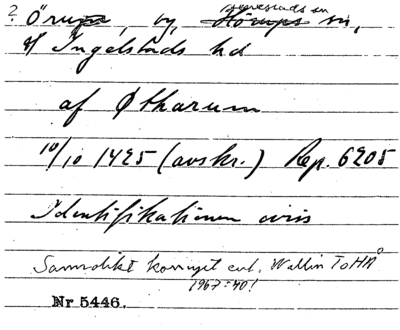 ? Örups, by, Hörups sn,
Ingelstads hd
af Øtharum
10/10 1425 (avskr.) Rep. 6205
Identifikationen oviss
Samrolikt korrupt enl. Wallin ToHÅ
1967:40!
Nr 5446.